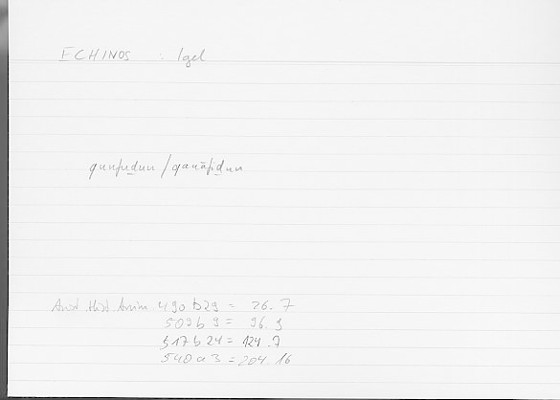 ECHINOS : Igel
qunfuḏun / qanāfiḏun
Arist. Hist. Anim 490 b 29 = 26. 7
509 b 9 = 96. 9
517 b 24 = 124. 7
540 a 3 = 204. 16